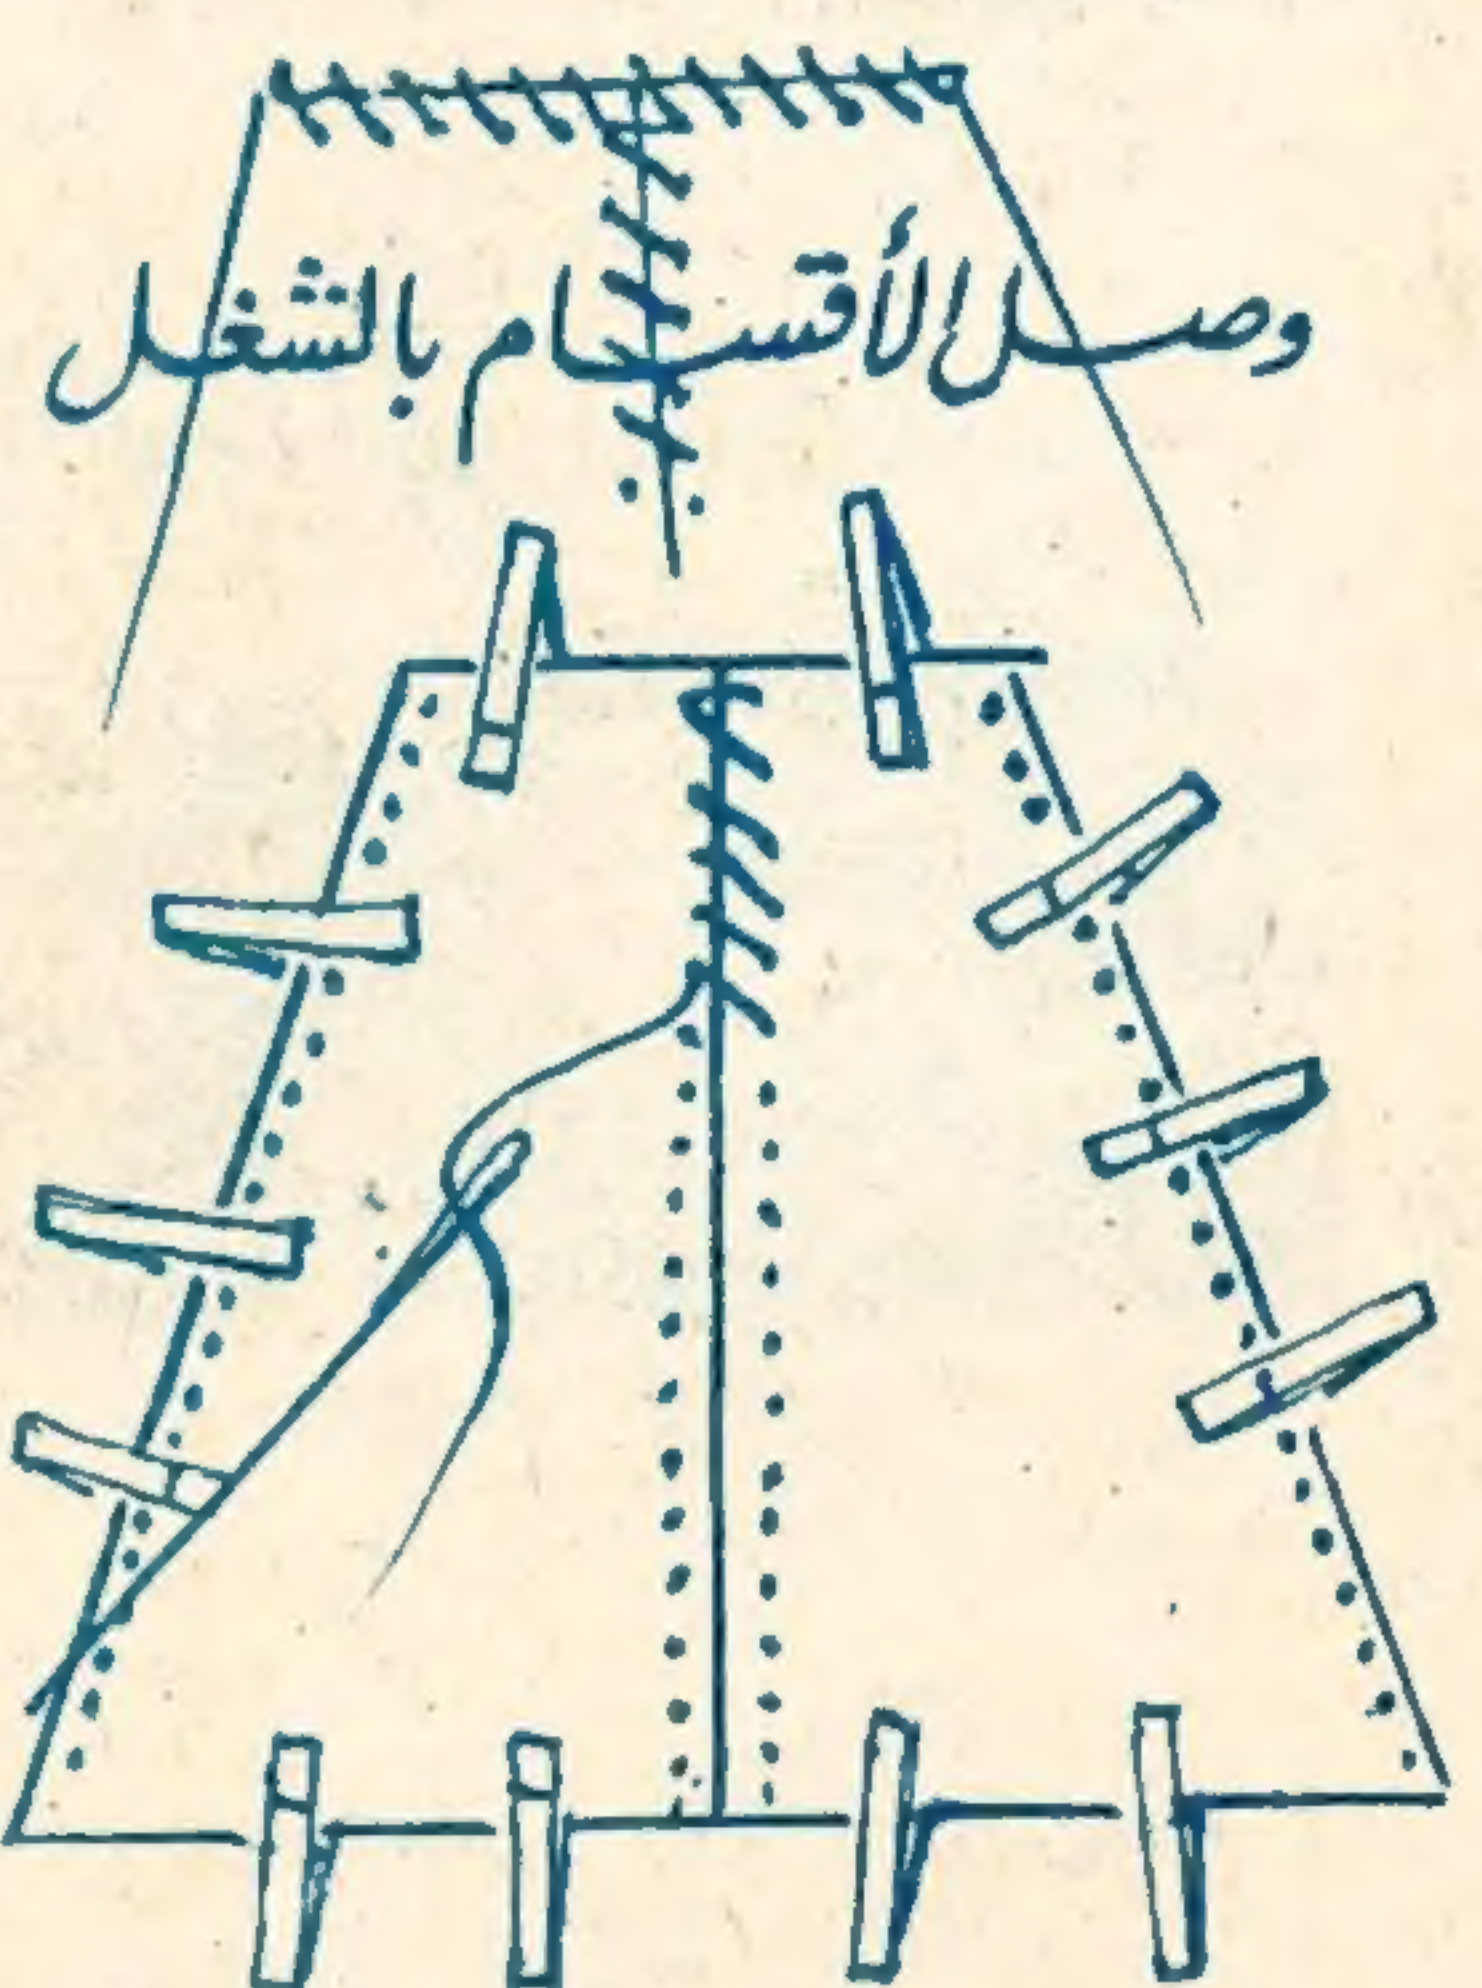 وصل الأقسام بالشغل